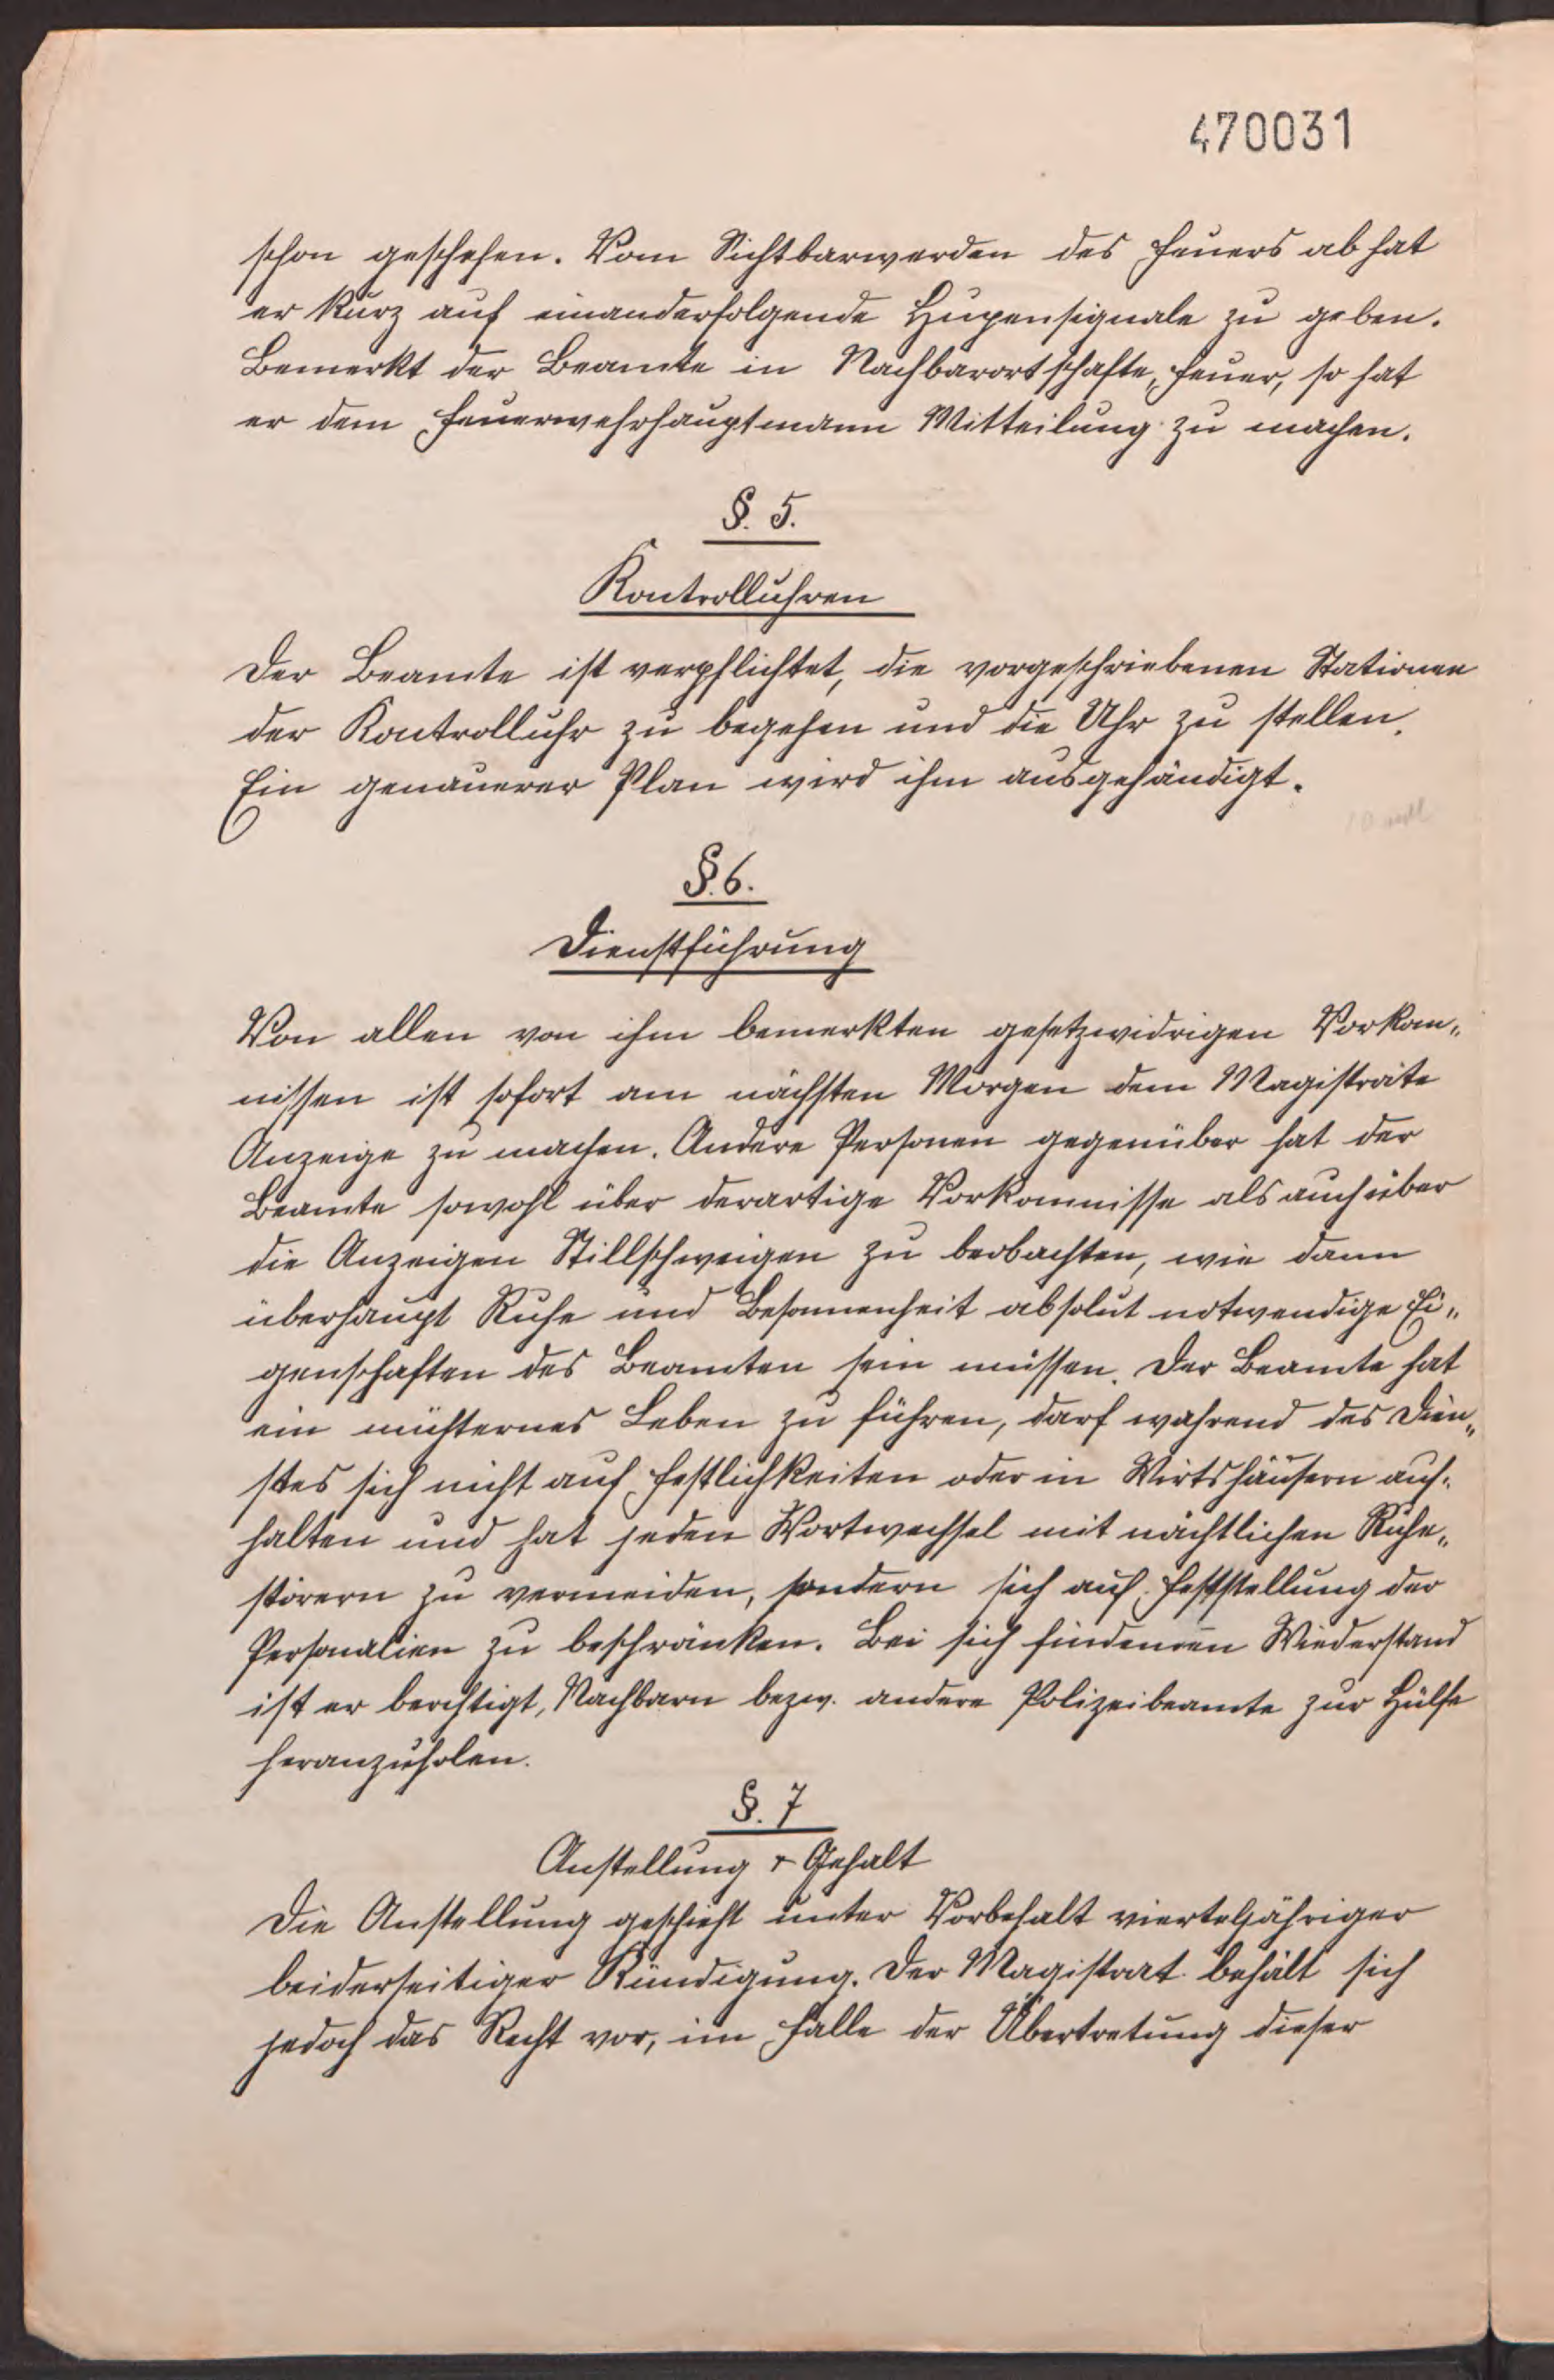 470031
schon geschehen. Vom Sichtbarwerden des Feuers ab hat
er kurz auf einanderfolgende Hupensignale zu geben.
Bemerkt der Beamte in Nachbarortschafte, Feuer, so hat
er dem Feuerwehrhauptmann Mitteilung zu machen.
§. 5.
Kontrolluhren
Der Beamte ist verpflichtet, die vorgeschriebenen Stationen
der Kontrolluhr zu begehen und die Uhr zu stellen.
Ein genauerer Plan wird ihm ausgehändigt.
§. 6.
Dienstführung
Von allen von ihm bemerkten gesetzwidrigen Vorkom„
nissen ist sofort am nächsten Morgen dem Magistrate
Anzeige zu machen. Andere Personen gegenüber hat der
Beamte sowohl über derartige Vorkomnisse als auch über
die Anzeigen Stillschweigen zu beobachten, wie dann
überhaupt Ruhe und Besonnenheit absolut notwendige Ei„
genschaften des Beamten sein müssen. Der Beamte hat
ein nüchternes Leben zu führen, darf während des Dien„
stes sich nicht auf Festlichkeiten oder in Wirtshäusern auf„
halten und hat jeden Wortwechsel mit nächtlichen Ruhe„
störern zu vermeiden, sondern sich auf Feststellung der
Personalien zu beschränken. Bei sich findenden Wiederstand
ist er berechtigt, Nachbarn bezw. andere Polizeibeamte zur Hülfe
heranzuholen.
§. 7
Anstellung & Gehalt
Die Anstellung geschieht unter Vorbehalt vierteljähriger
beiderseitiger Kündigung. Der Magistrat behält sich
jedoch das Recht vor, im Falle der Übertretung dieser